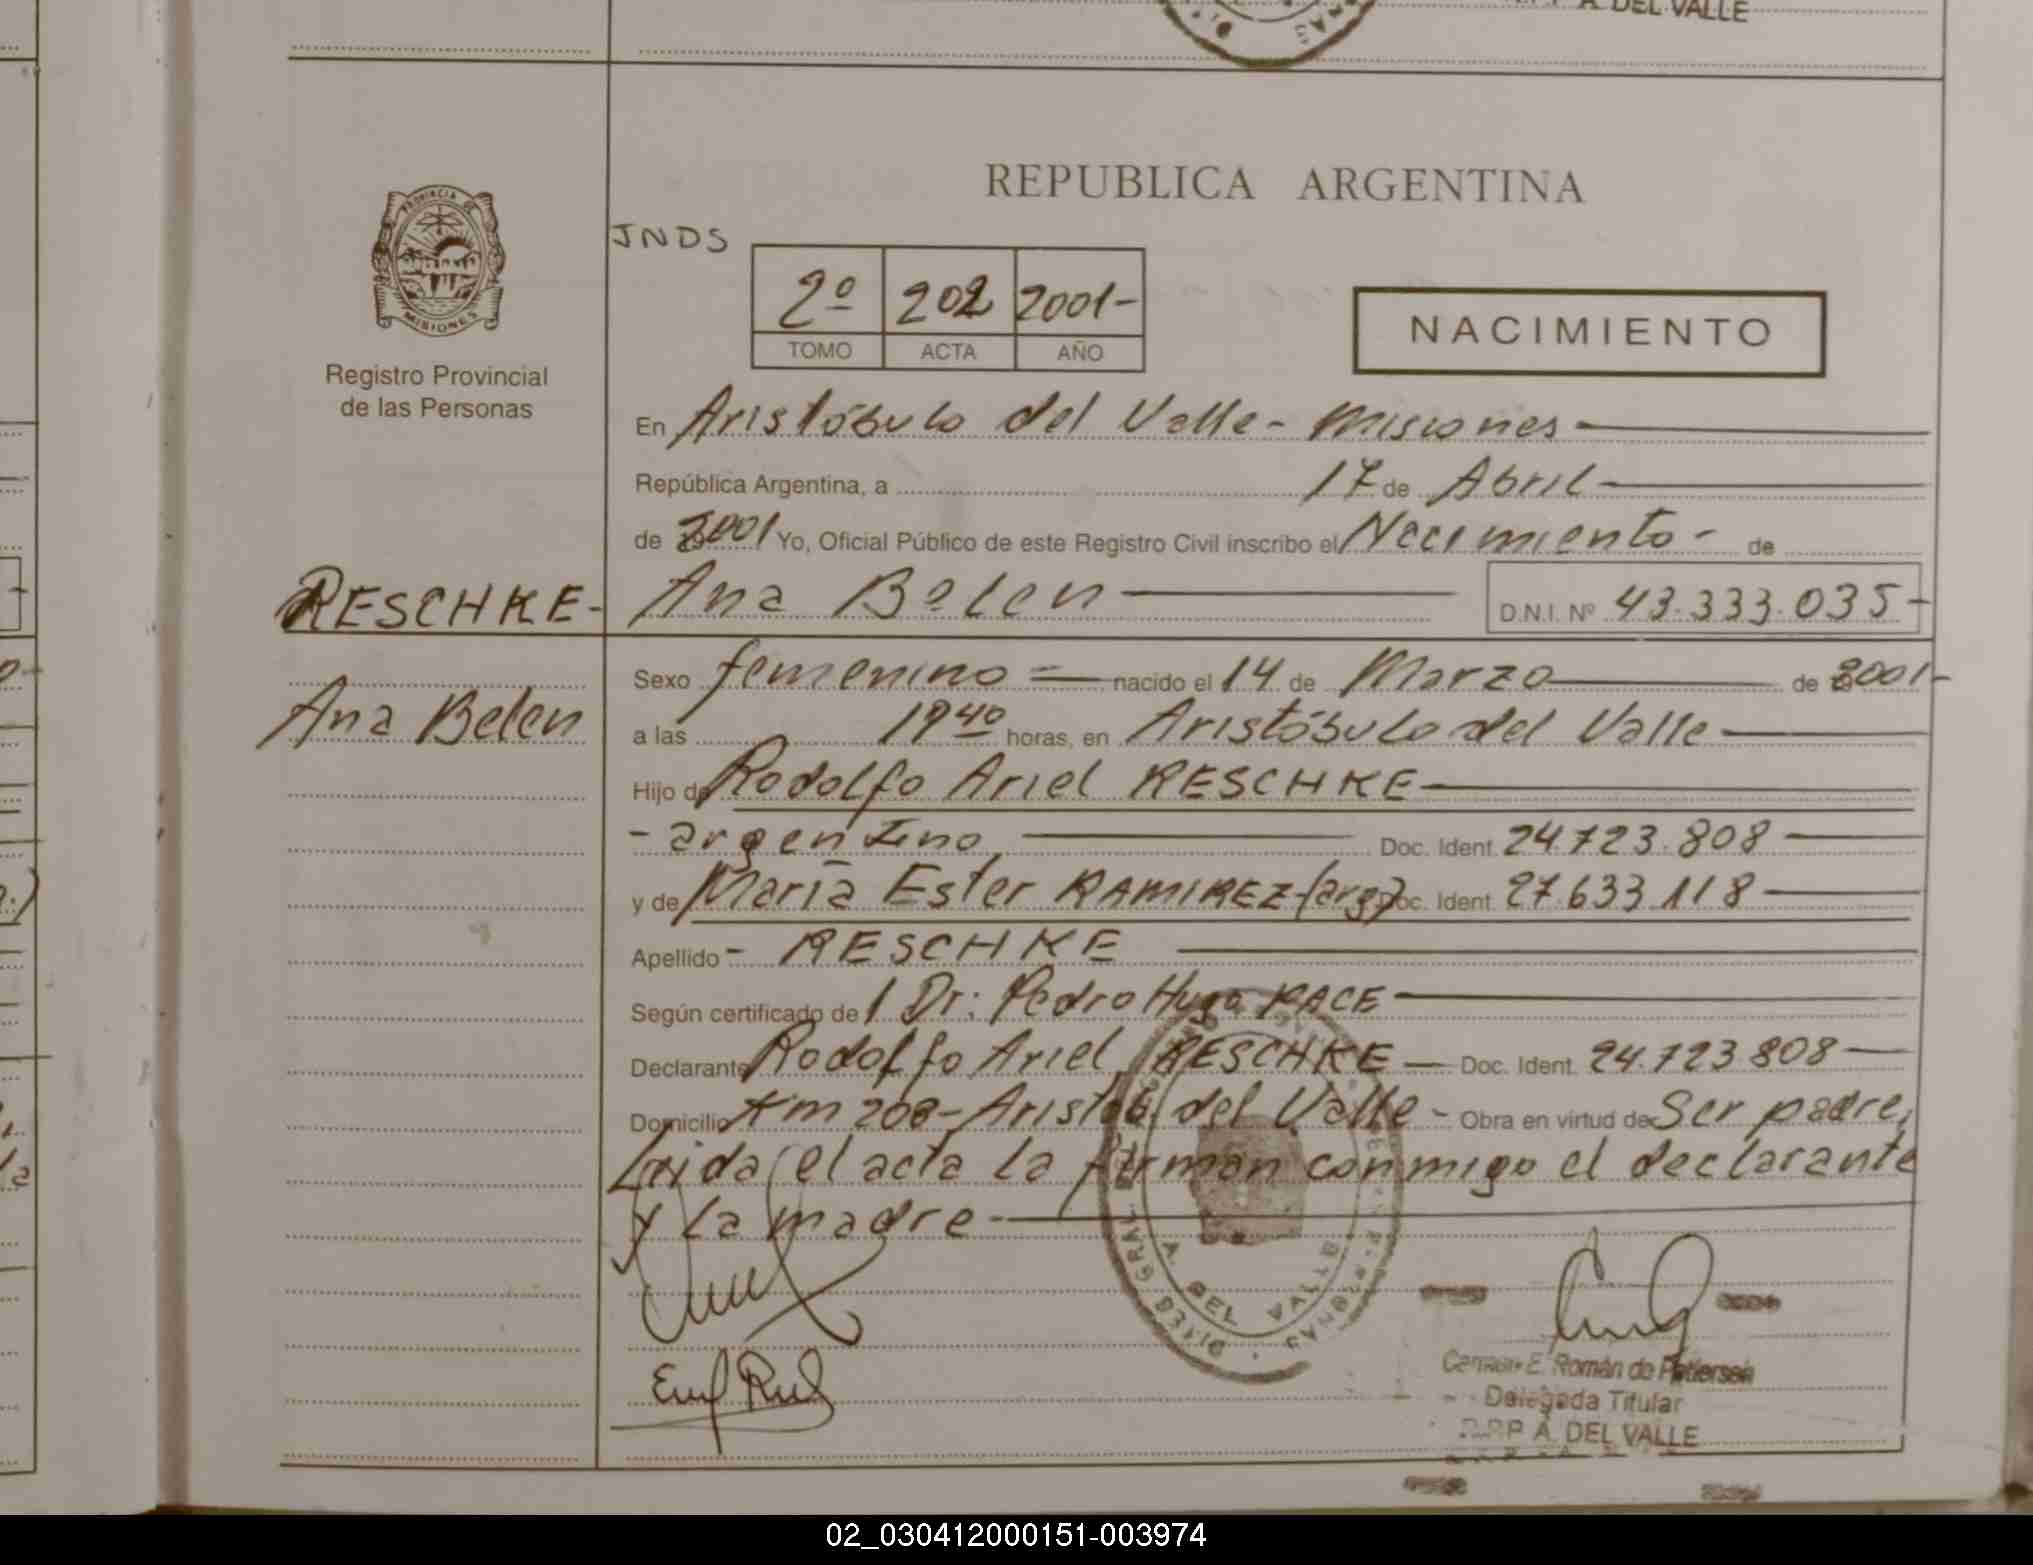 A. DEL VALLE
PROVINCIA DE
MISIONES
Registro Provincial
de las Personas
RESCHKE-
Ana Belen
REPUBLICA ARGENTINA
JNDS
2º 202 2001-
TOMO ACTA AÑO
NACIMIENTO
En Aristóbulo del Valle - Misiones
República Argentina, a 17 de Abril
de 2001 Yo, Oficial Público de este Registro Civil inscribo el Nacimiento - de
Ana Belen D.N.I. Nº 43.333.035-
Sexo femenino = nacido el 14 de Marzo de 2001-
a las 19 40 horas, en Aristóbulo del Valle
Hijo de Rodolfo Ariel RESCHKE
- argentino Doc. Ident. 24.723.808
y de María Ester RAMIREZ-(arg) Doc. Ident. 27.633.118
Apellido - RESCHKE
Según certificado de 1 Dr: Pedro Hugo RACE
Declarante Rodolfo Ariel RESCHKE - Doc. Ident. 24.723.808
Domicilio Km 208 - Aristób. del Valle - Obra en virtud de Ser padre,
Leida el acta la firman conmigo el declarante
y la madre -
A. DEL VALLE
E. Román de
Delegada Titular
A. DEL VALLE
02_030412000151-003974